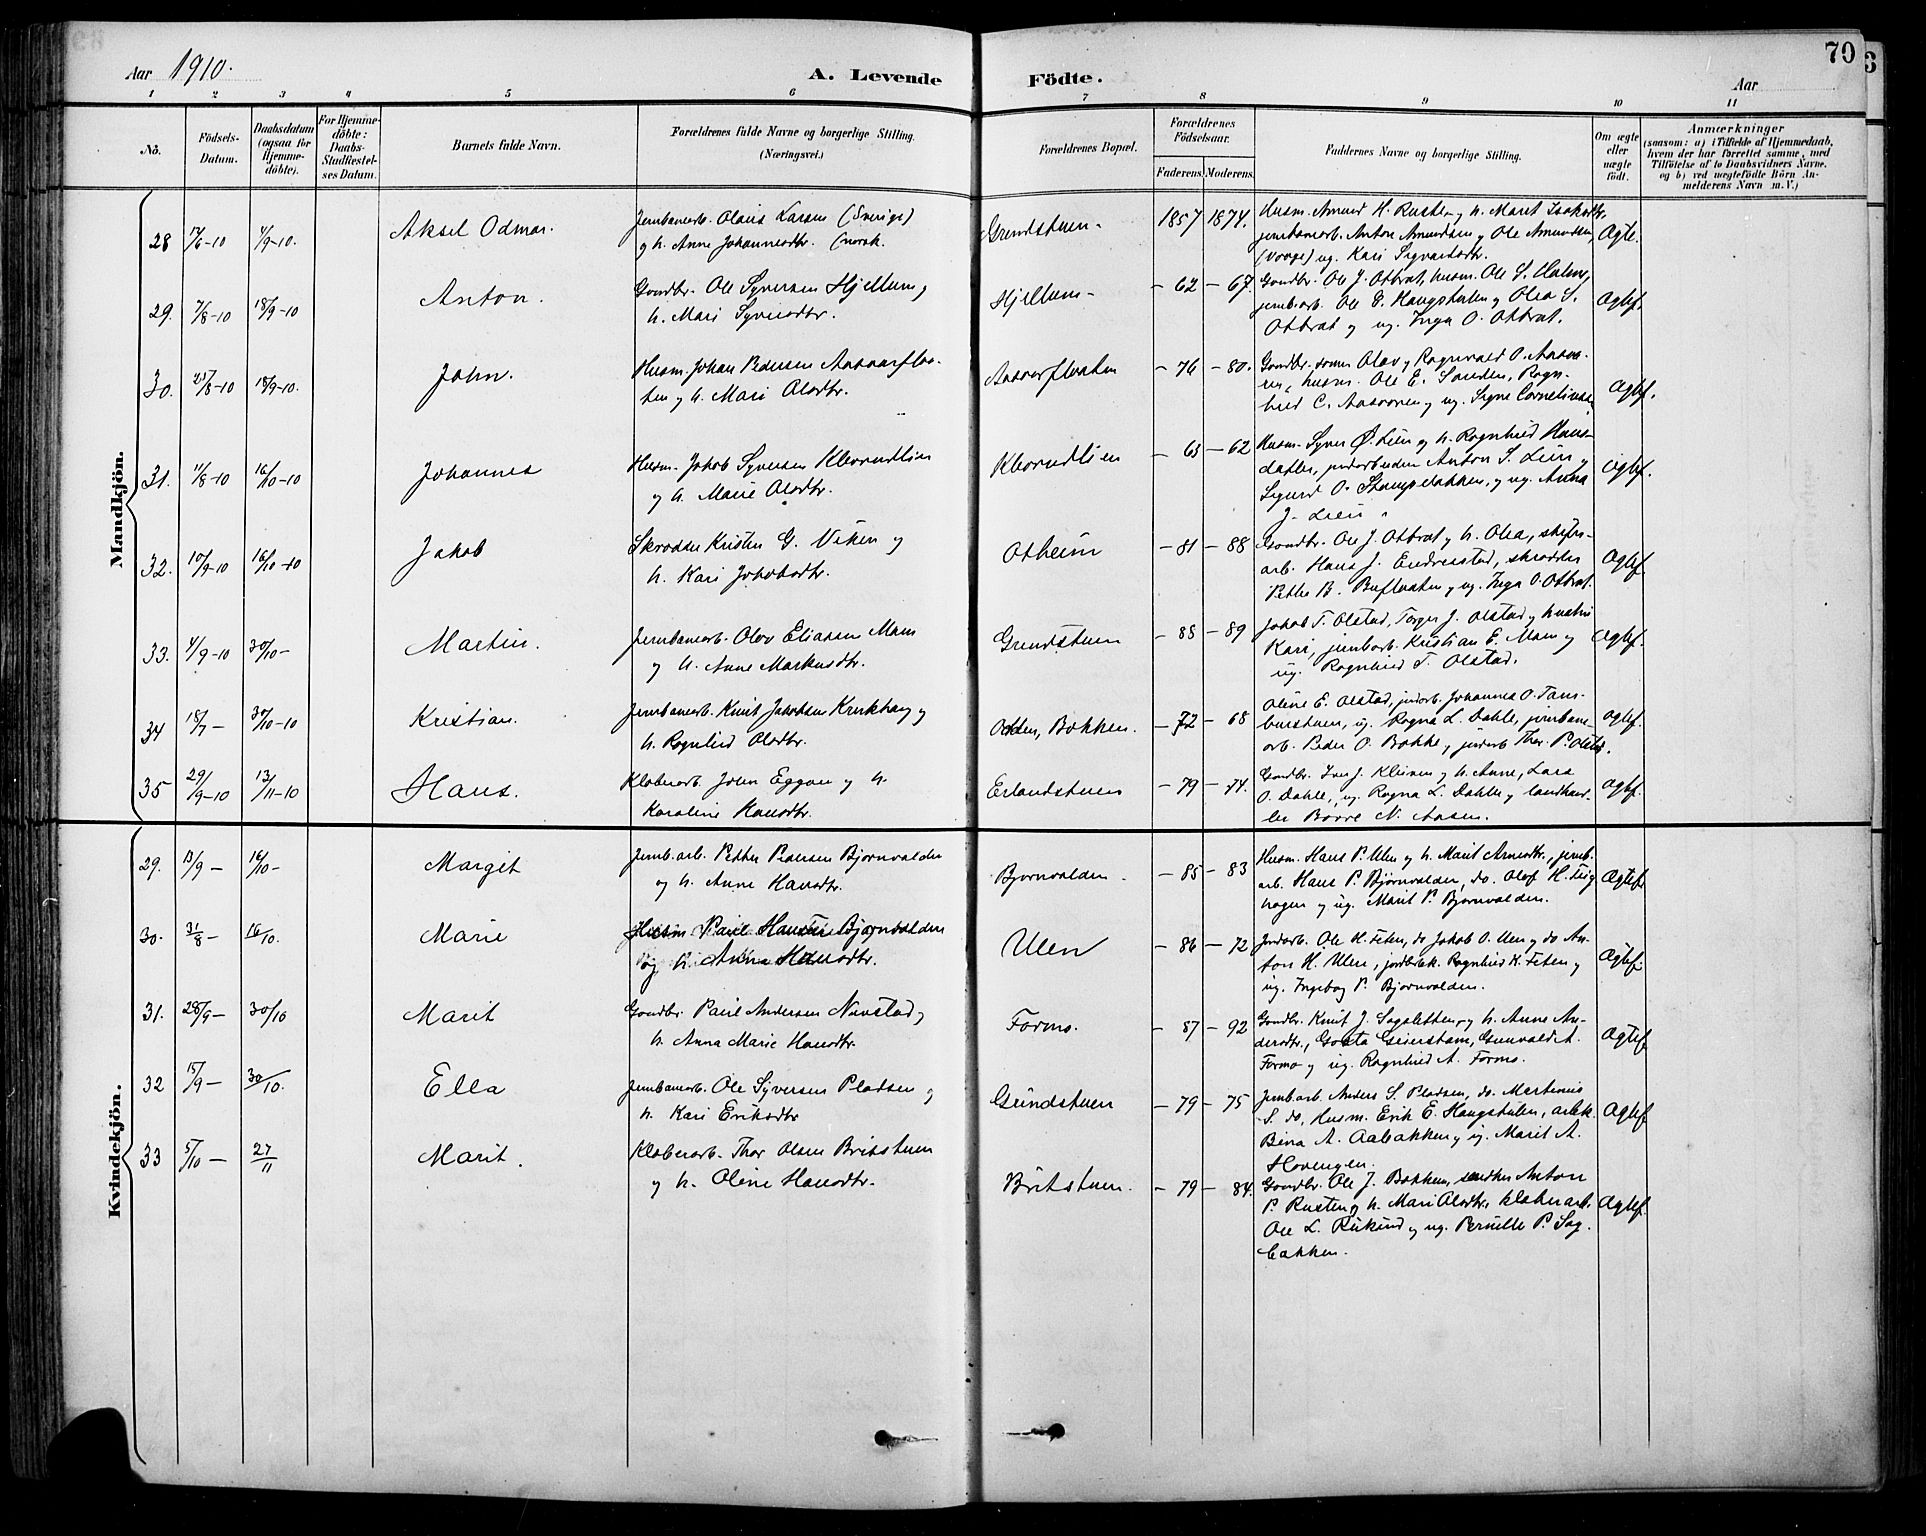 Aar 1910.
A. Levende Födte.
Aar
70
3
1 2 3 4 5 6 7 8 9 10 11
No.
Födsels-Datum.
Daabsdatum (ogsaa for Hjemmedöbte).
For Hjemmedöbte: Daabs-Stadfæstelses Datum.
Barnets fulde Navn.
Forældrenes fulde Navne og borgerlige Stilling.
(Næringsvei.)
Forældrenes Bopæl.
Forældrenes Födselsaar.
Faderens. Moderens.
Faddernes Navne og borgerlige Stilling.
Om ægte eller uægte födt.
Anmærkninger
(saasom: a) i Tilfælde af Hjemmedaab, hvem der har forrettet samme, med Tilföielse af to Daabsvidners Navne. og b) ved uægtefödte Börn Anmelderens Navn m. V.)
Mandkjön.
28 17/6-10 4/9-10. Aksel Odmar.
Jernbanearb. Olaus Larsen (Sverige)
og h. Anne Johannesdtr. (norsk.
Grindstuen - 1857 1874.
Husm. Amund H. Rusten og h. Marit Isaksdtr,
jernbanearb. Anton Amundsen og Ole Amundsen,
(Vaage) ug. Kari Sigvartsdtr.
Ægte.
29. 7/8-10 18/9-10 Anton.
Gaardbr. Ole Syversen Hjellum og
h. Mari Syversdtr.
Hjellum - - 62 - 67.
Gaardbr. Ole J. Ottbrat, husm. Ole S. Holm,
jernbarb. Ole E. Haugstulen og Olea S.
Ottbrat og ug. Inga O. Ottbrat.
Ægtef.
30. 21/8-10 18/9-10. John.
Husm. Johan Pedersen Aasaarflaa-
ten og h. Mari Olsdtr.
Aasaarflaaten - 76 - 80.
Gaardbr. sønner Olav og Ragnvald O. Aasaa-
ren, husm. Ole E. Sanden, Ragn-
hild C. Aasaaren og ug. Signe Corneliusen
Ægtef.
31. 11/8-10 16/10-10 Johannes
Husm. Jakob Syversen Kleivrudlien
og h. Marie Olsdtr.
- 63 - 62
Husm. Syver Ø. Lien og h. Ragnhild Hans-
datter, jordarbeider Anton S. Lien og
Sigurd O. Stampebakken, og ug. Anna
J. Lien
Ægtef.
32. 10/9-10 16/10-10 Jakob
Skrædder Kristen G. Viken og
h. Kari Jakobsdtr.
Otheim - 81 - 88
Gaardbr. Ole J. Ottbrat og h. Olea, skifer-
arb. Hans J. Endrestad, skrædder
Petter B. Bufladten og ug. Inga O. Ottbrat.
Ægtef.
33. 4/9-10 30/10- Martin.
Jernbanearb. Olav Eliasen Moen
og h. Anne Markusdtr.
Grindstuen - 88 - 89
Jakob T. Olstad, Torger J. Olstad og hustru
Kari, jernbarb. Kristian E. Moen og
ug. Ragnhild T. Olstad.
Ægtef.
34 18/7- 30/10-10 Kristian.
Jernbanearb. Knut Jakobsen Krukhaug og
h. Ragnhild Olsdtr.
Odden, Bakken. - 72 - 68
Oline E. Olstad, jordarb. Johannes O. Tams-
burstuen, ug. Ragna L. Dahle, jernbane-
arb. Peder O. Bakke, og jordarb Thor P. Olstad.
Ægtef.
35 29/9-10 13/11-10 Hans.
Kleberarb. John Eggen og h.
Karoline Hansdtr.
Erlandstuen - 79 - 74.
Gaardbr. Iver J. Kleiven og h. Anne, Lars
O. Dahle, ug. Ragna L. Dahle og landhand-
ler Borre N. Aasen.
Ægtef.
Kvindekjön.
29. 13/9- 16/10- Margit
Jernb.arb. Petter Pedersen Bjørnvolden
og h. Anne Hansdtr.
Bjørnvolden. - 85 - 83
Husm. Hans P. Ulen og h. Marit Arnesdtr., jernb.
arb. Hans P. Bjørnvolden, do. Olaf H. Teig-
hagen og ug. Marit P. Bjørnvolden.
Ægtef.
30. 31/8- 16/10. Marie
Husm Paul Hansen Bjørnvolden
og h. Anna Hansdtr.
Ulen - 86 - 72
Jordarb. Ole H. Feten, do Jakob O. Ulen og do An-
ton H. Ulen, jordbrbk. Ragnhild K. Feten og
ug. Ingebog P. Bjørnvolden.
Ægtef.
31. 28/9- 30/10 Marit
Gaardbr. Paul Andersen Nustad og
h. Anna Marie Hansdtr.
Formo. - 87 - 92
Gaardbr. Knut J. Sagsletten og h. Anne An-
dersdtr., Gösta Geierstam, Gunvald A.
Formo og ug. Ragnhild A. Formo.
Ægtef
32 15/9- 30/10. Ella
Jernbanearb. Ole Syversen Pladsen og
h. Kari Eriksdtr
Grindstuen - 79 - 75
Jernb.arb. Anders S. Pladsen, do. Martinus
S. do, Husm. Erik E. Haugstulen, arbk.
Bina A. Aabakken og ug. Marit A.
Hovengen.
Ægtef
33 5/10- 27/11 Marit.
Kleberarb. Thor Olsen Britstuen
og h. Oline Hansdtr.
Britstuen. - 79 - 84.
Gaardbr. Ole J. Bakken, snedker Anton
P. Rusten og h. Mari Olsdtr, kleberarb.
Ole L. Rukind og ug. Pernille P. Sag-
bakken.
Ægtef.